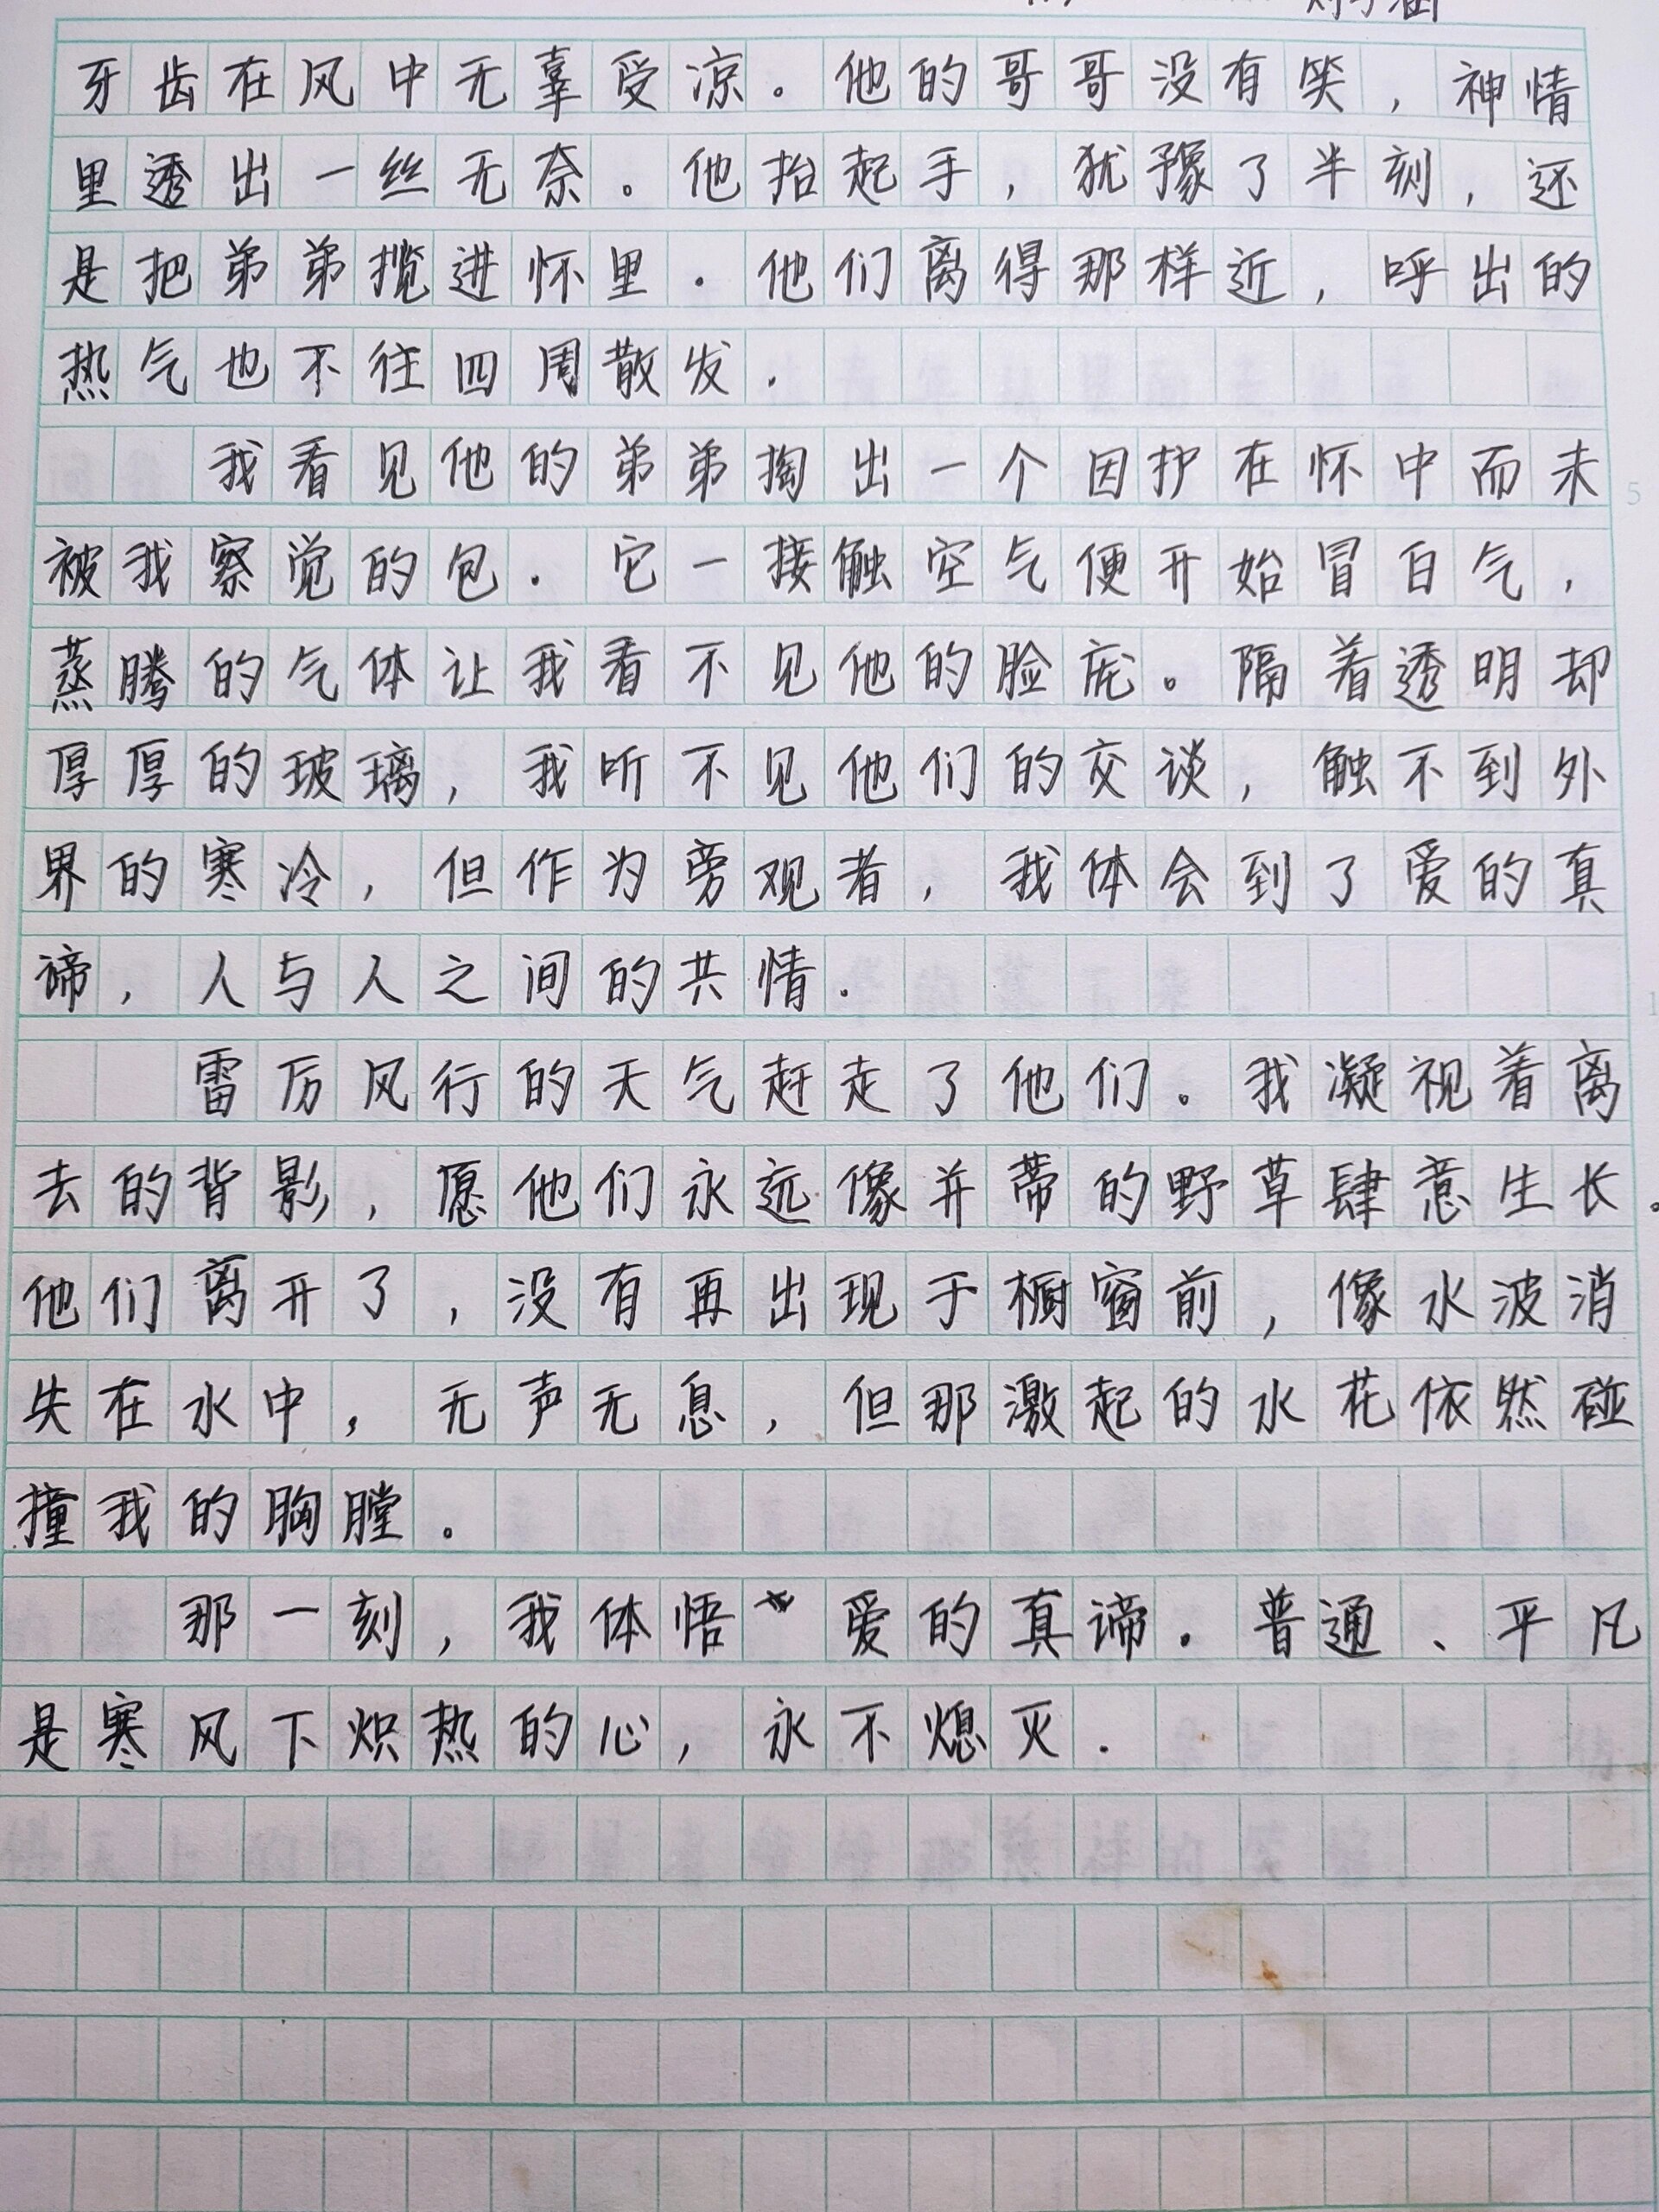 牙齿在风中无辜受凉。他的哥哥没有笑，神情
里透出一丝无奈。他抬起手，犹豫了半刻，还
是把弟弟揽进怀里．他们离得那样近，呼出的
热气也不往四周散发．
我看见他的弟弟掏出一个因护在怀中而未
被我察觉的包．它一接触空气便开始冒白气，
蒸腾的气体让我看不见他的脸庞。隔着透明却
厚厚的玻璃，我听不见他们的交谈，触不到外
界的寒冷，但作为旁观者，我体会到了爱的真
谛，人与人之间的共情．
雷厉风行的天气赶走了他们。我凝视着离
去的背影，愿他们永远像并蒂的野草肆意生长。
他们离开了，没有再出现于橱窗前，像水波消
失在水中，无声无息，但那激起的水花依然碰
撞我的胸膛。
那一刻，我体悟爱的真谛．普通、平凡
是寒风下炽热的心，永不熄灭．
5